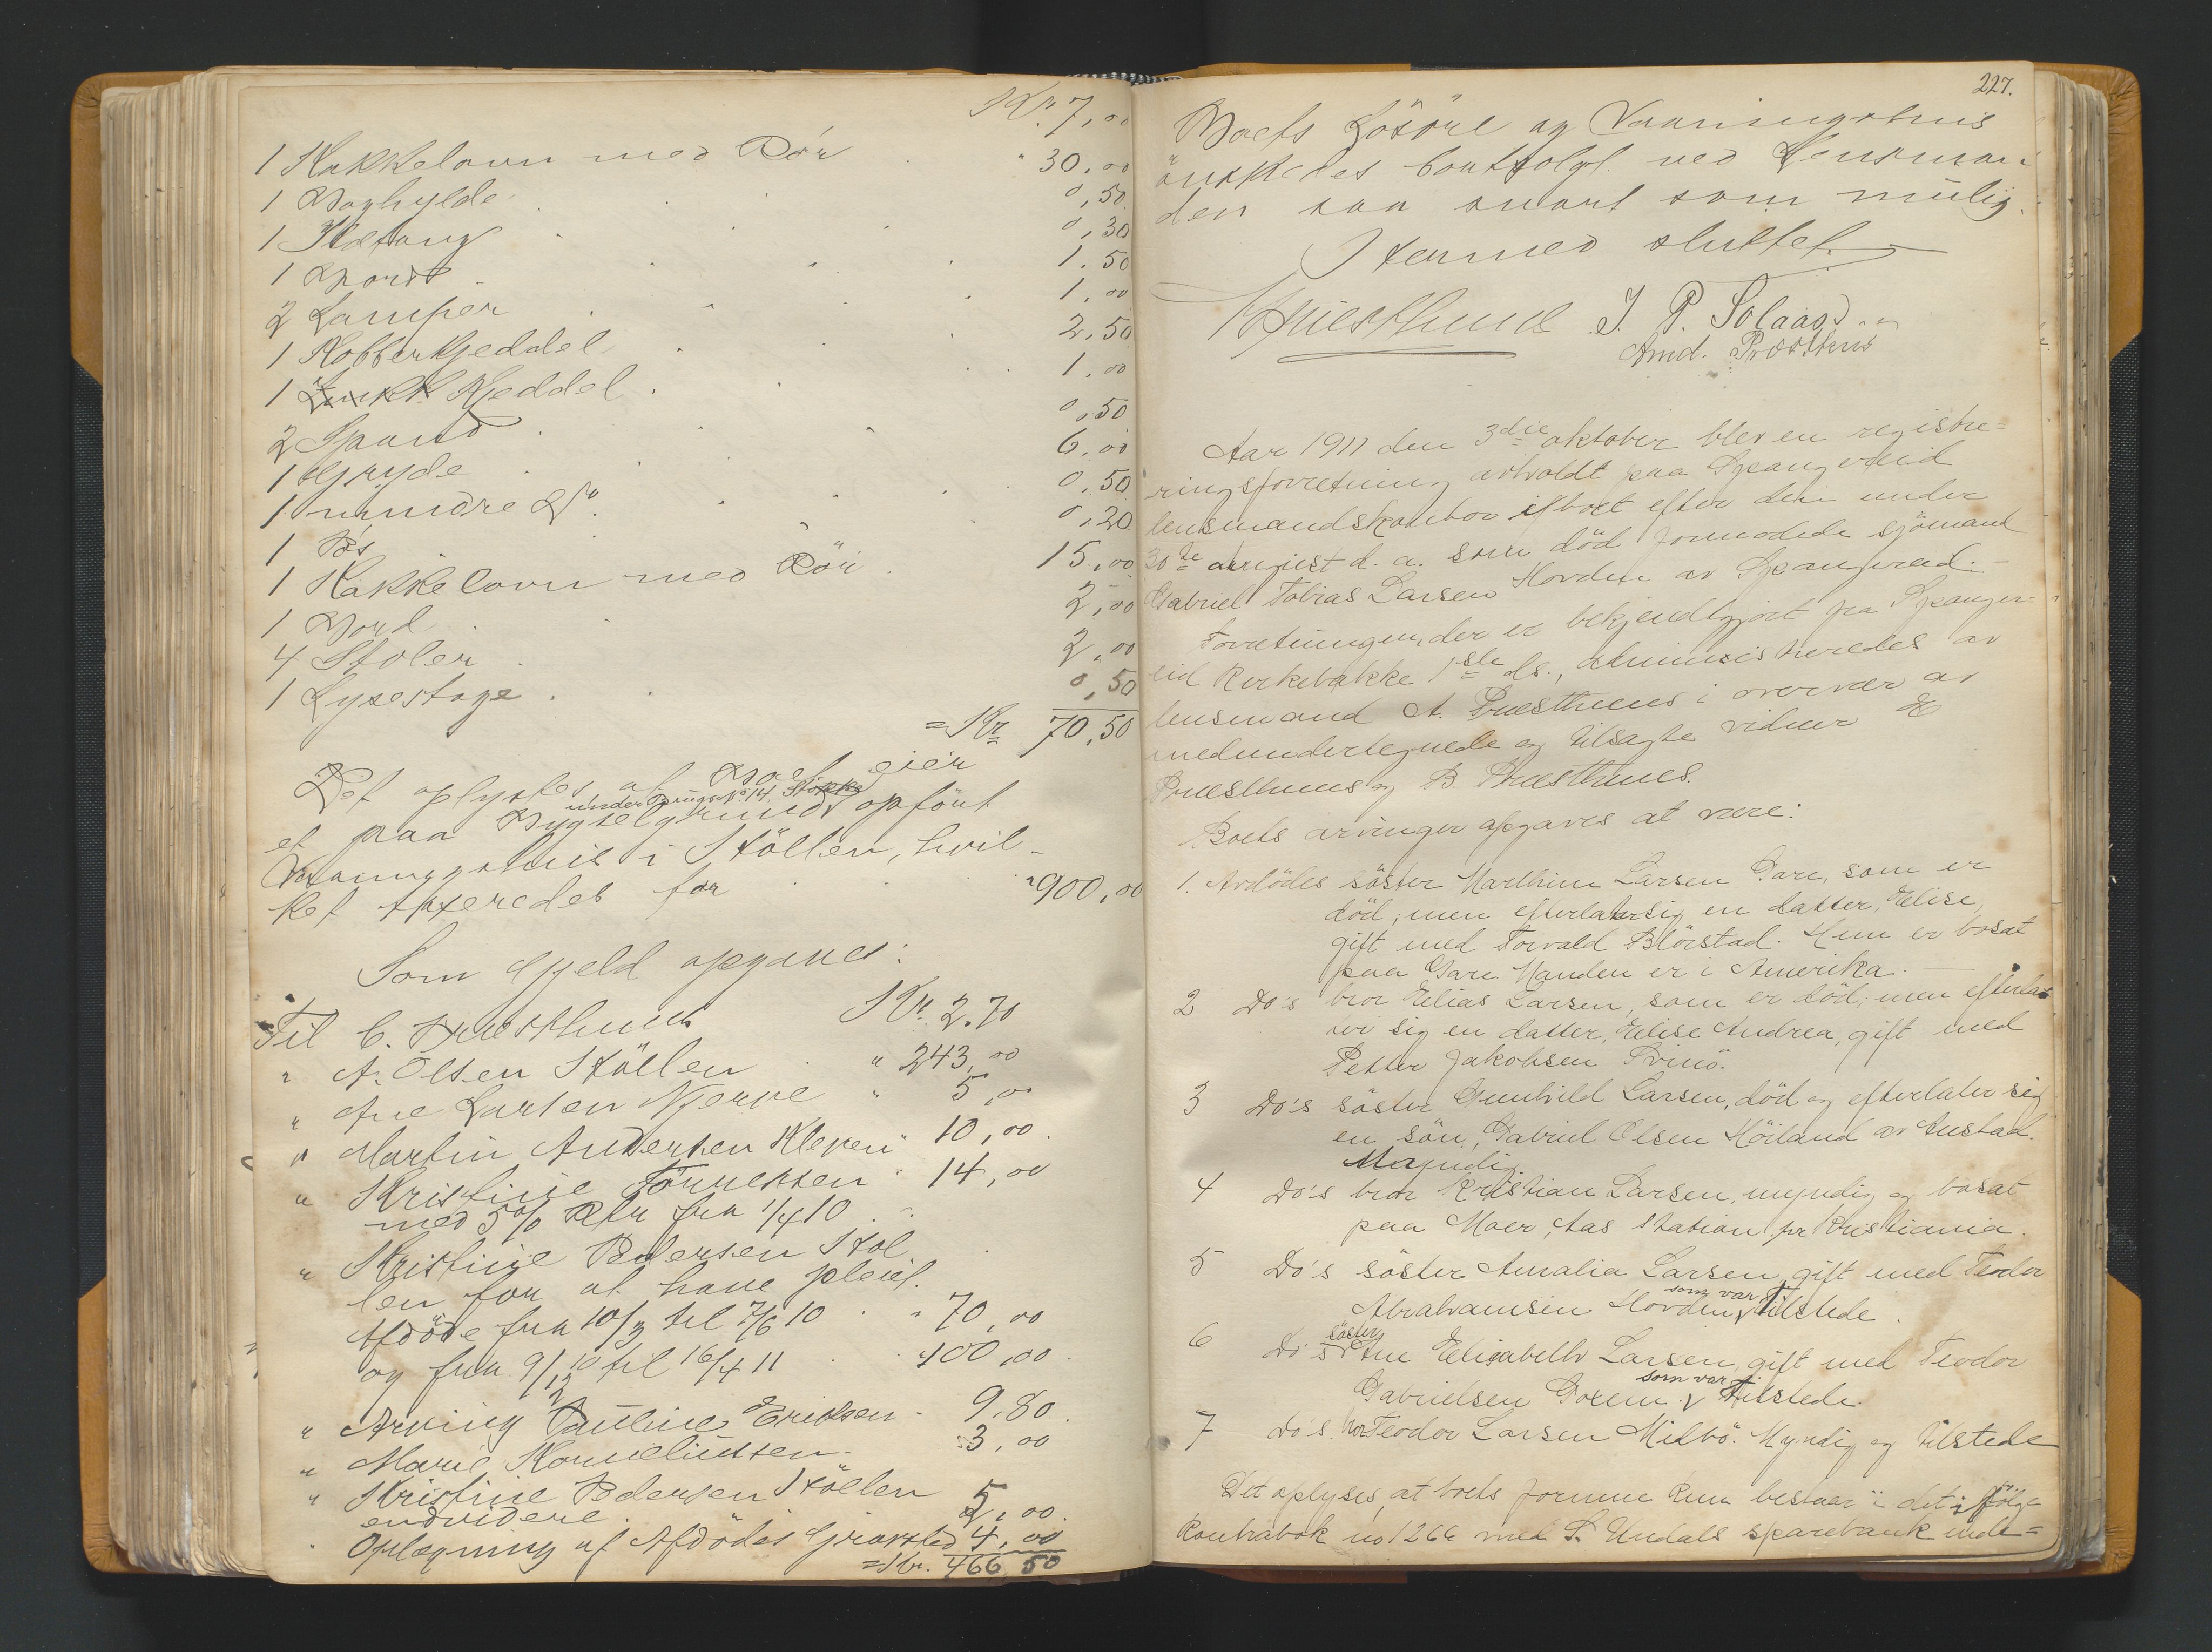 Kr. 7,00
1 Kakkelovn med Rör " 30,00
1 Boghylde 0,50
1 Ildtang 0,30
1 Bord 1.50
2 Lamper 1,00
1 Kobberkjeddel 2,50
1 Kjeddel 1,00
2 Spand 0,50
1 Gryde 6,00
1 mindre Do 0,50
1 Bös 0,20
1 Kakkelovn med Rör 15,00
1 Bord 2,00
4 Stoler 2,00
1 Lysestage 0,50
= Kr 70,50
Det oplystes at Boet eier
under Brugs No. 14, Stokke
et paa Bygselgrund opfört
Vaaningshus i Stöllen, hvil-
ket taxeredes for " 900,00
Som Gjeld opgaves:
Til C. Præsthuus Kr. 2.70
" A. Olsen Stöllen " 243,00
" Ane Larsen Njerve " 5,00
" Martin Andersen Kleven " 10,00
" Kristine Tönnessen " 14,00
med 5% Rtr fra 1/4 10
" Kristine Pedersen Stöl
len for at have pleiet
Afdöde fra 10/3 til 7/6 10 " 70,00
og fra 9/12 10 til 16/4 11 " 100,00
" Arving Pauline Eriksen " 9.80
" Marie Korneliussen 3,00
" Kristine Pedersen Stöllen
endvidere 5,00
" Oplægning af Afdödes Gravsted 4,00
= Kr. 466 50
227.
Boets Lösöre og Vaaningshus
önskedes bortsolgt ved Lensman
den saa snart som mulig.
Hermed sluttet.
Præsthuus J. P. Solaas
Amd. Præsthus
Aar 1911 den 3die oktober blev en registre=
ringsforretning avholdt paa Spangereid
lensmandskontor i boet efter den under
30te august d. a. som död formodede sjömand
Gabriel Tobias Larsen Hovden av Spangereid.-
Forretningen, der er bekjendtgjort fra Spanger=
eid Kirkebakke 1ste ds., administreredes av
lensmand A. Præsthuus i overvær av
medundertegnede og tilsagte vidner E
Præsthuus og B. Præsthuus.
Boets arvinger opgaves at være:
1. Avdödes söster Marthine Larsen Gare, som er
död, men efterlater sig en datter, Elise,
gift med Torvald Blörstad. Hun er bosat
paa Gare Manden er i Amerika.
2 Do's bror Elias Larsen, som er död, men efterla=
ter sig en datter, Elise Andrea, gift med
Petter Jakobsen Svinö.
3 Do's söster Gunhild Larsen, död og efterlater sig
en sön, Gabriel Olsen Höiland av Austad.
Myndig.
4 Do's bror Kristian Larsen, myndig og bosat
paa Moer, Aas Station pr Kristiania.
5 Do's söster Amalia Larsen, gift med Teodor
Abrahamsen Hovden, som var tilstede.
6 Do's söster Ane Elisabeth Larsen, gift med Teodor
Gabrielsen Goxem, som var tilstede.
7 Do's bror Teodor Larsen Midbö. Myndig og tilstede
Det oplyses, at boets formue kun bestaar i det ifölge
Kontrabok no 1266 med S. Undals sparebank inde=